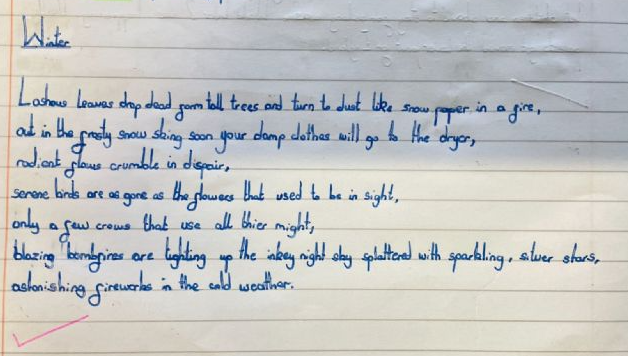 Winter
Loshous leaves drop dead from tall trees and turn to dust like snow paper in a fire,
out in the frosty snow skiing soon your damp clothes will go to the dryer,
radiant flows crumble in dispair,
serene birds are as gone as the flowers that used to be in sight,
only a few crows that use all thier might,
blazing bombfires are lighting up the inkey night sky splattered with sparkling, silver stars,
astonishing fireworks in the cold weather.